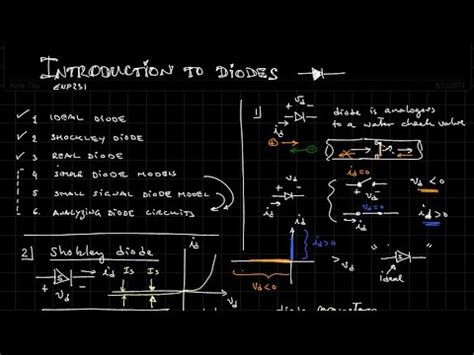 INTRODUCTION TO DIODES
Note Title
ENP231
✓ 1 IDEAL DIODE
✓ 2 SHOCKLEY DIODE
✓ 3 REAL DIODE
4 SIMPLE DIODE MODELS
5 SMALL SIGNAL DIODE MODEL
6. ANALYZING DIODE CIRCUITS
1)
+ Vd -
id
diode is analogous
to a water check valve
+ Vd -
id
id=0
Vd<0
Vd=0
id>0
id
id>0
Vd<0
Vd
" "
ideal
2) Shokley diode
+ -
id
Vd
Is Is
id
Vd